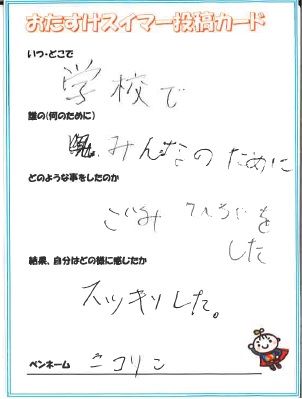 おたすけスイマー投稿カード
いつ・どこで
学校で
誰の(何のために)
みんなのために
どのような事をしたのか
ごみひろいを
した
結果、自分はどの様に感じたか
スッキリした。
ペンネーム ニコリン